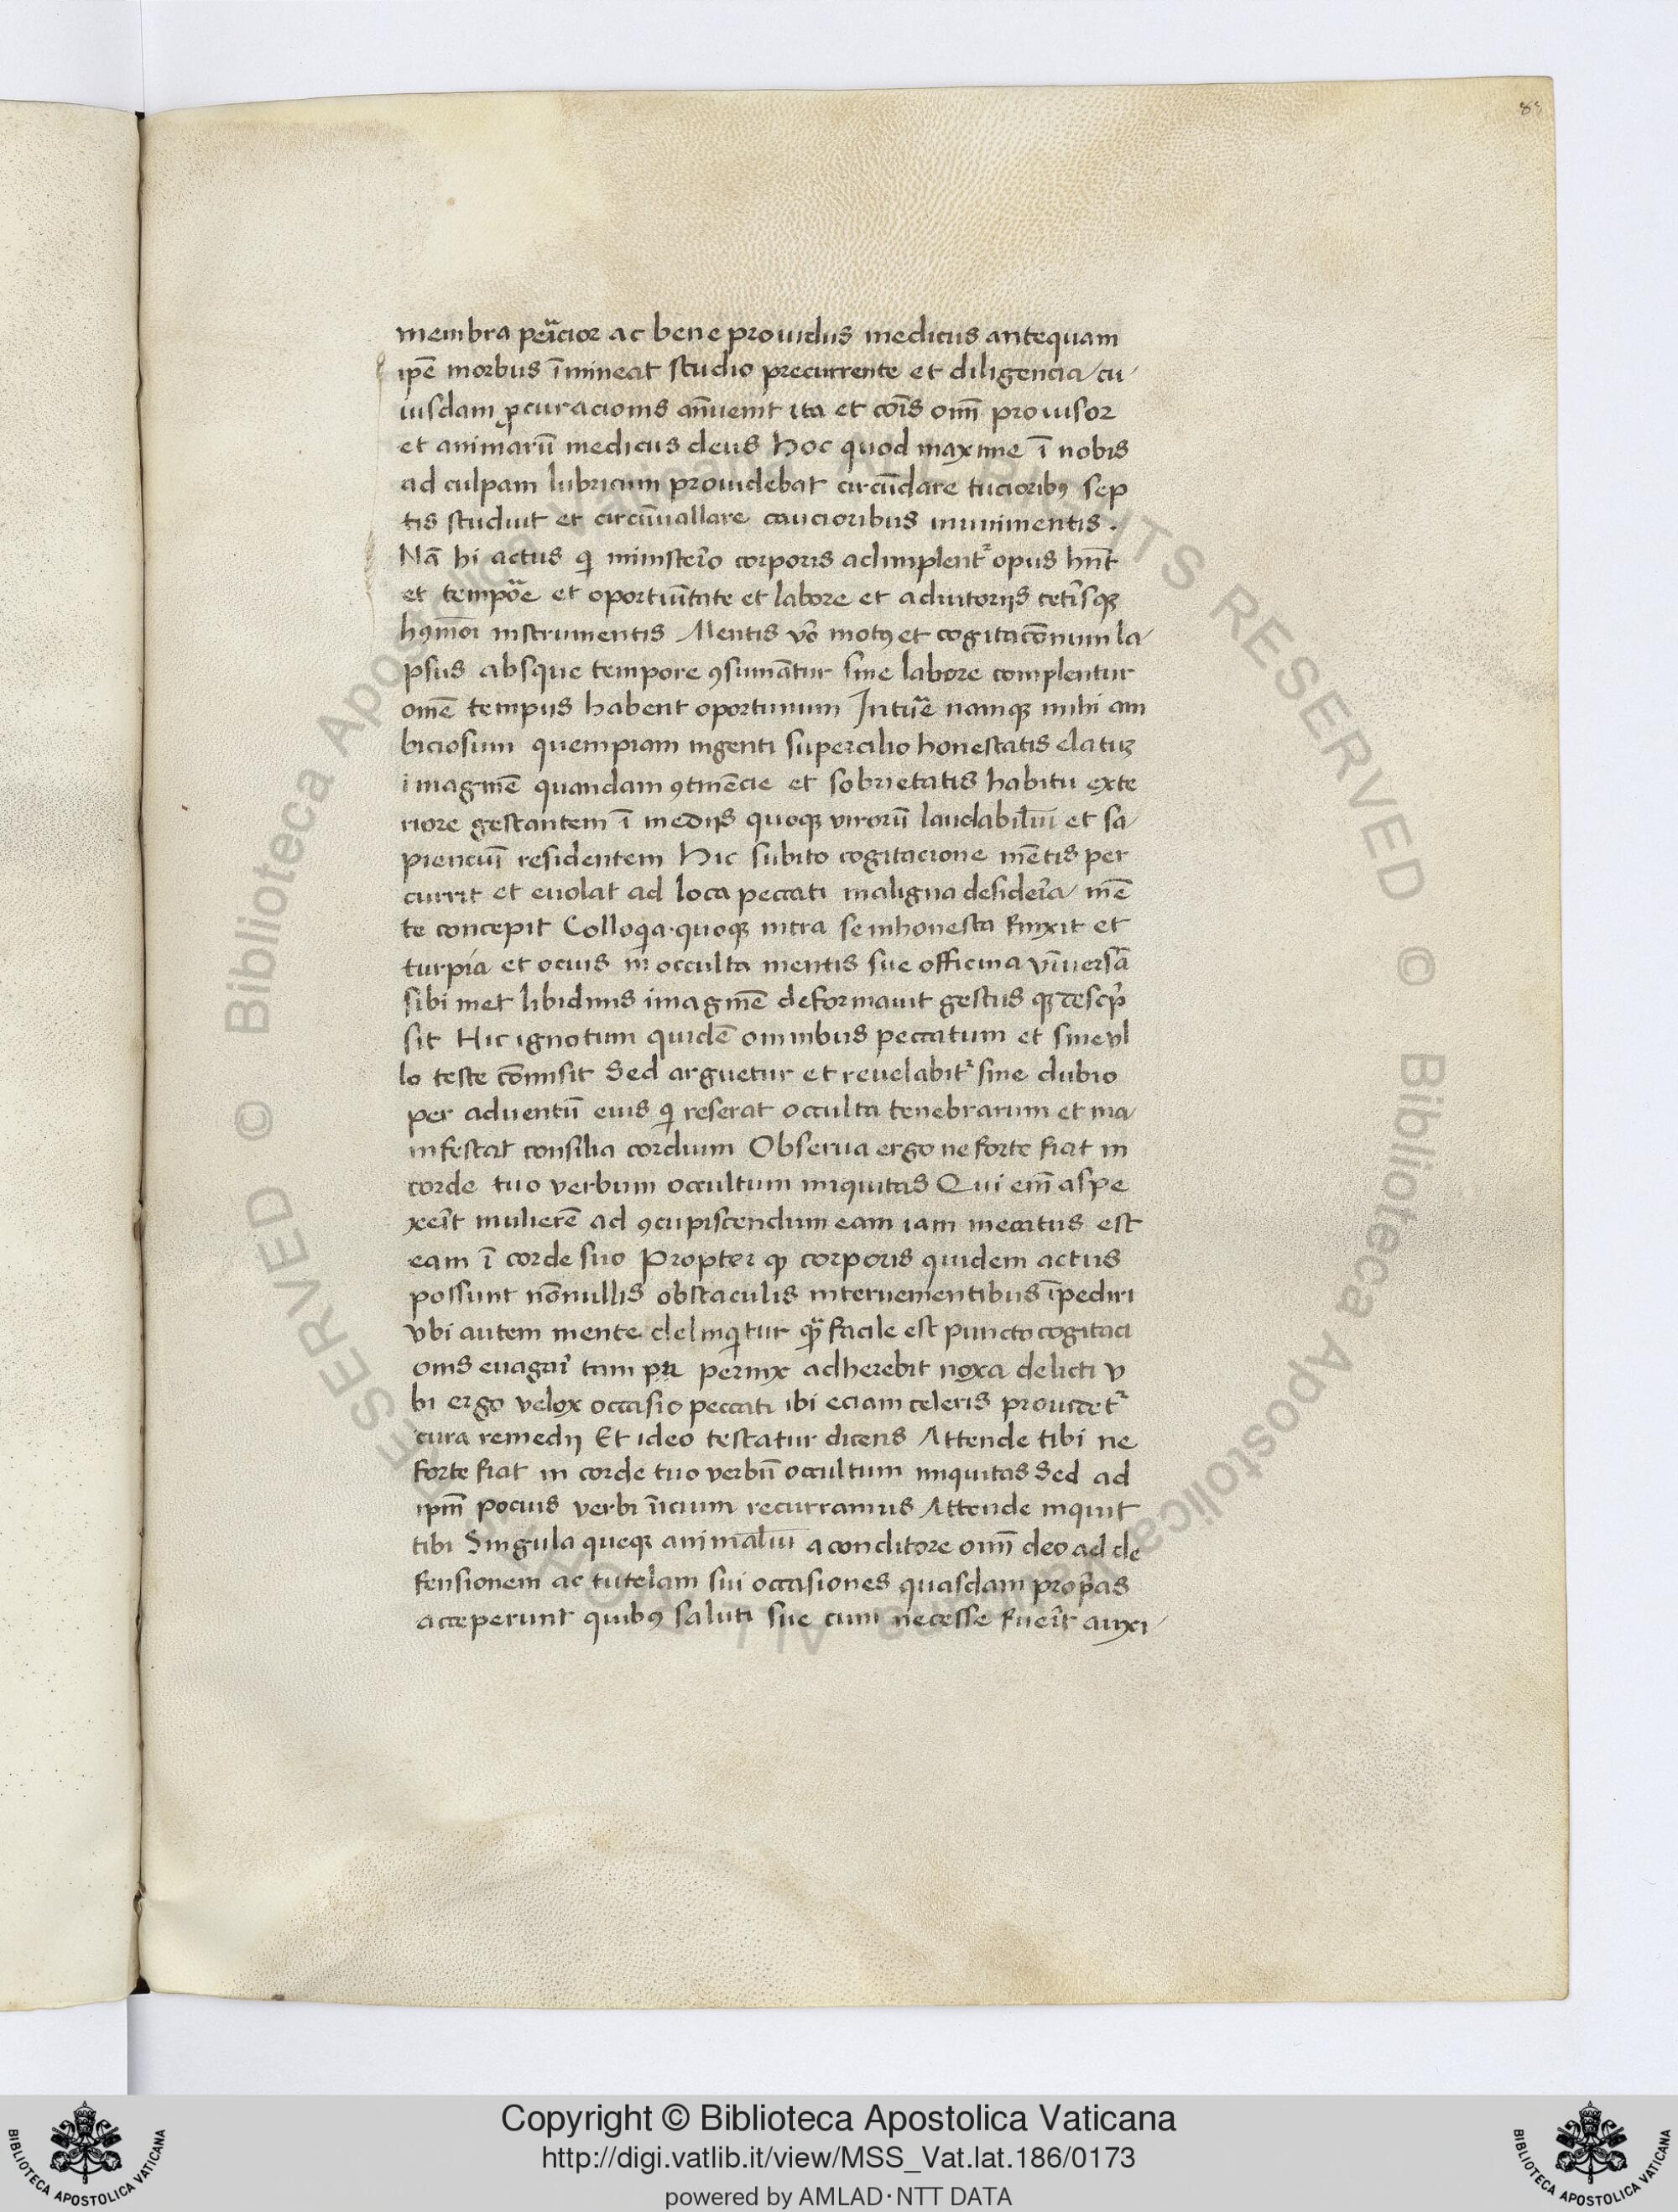 83
membra peͣcior ac bene prouidus medicus antequam
ip̄e morbus īmineat studio precurrente et diligencia cu
iusdam ꝓcuracionis an̄uenit ita et cōis om̄ prouisor
et animarū medicus deus hoc quod maxime ī nobis
ad culpam lubricum prouidebat circūdare tucioribꝰ sep
tis studuit et circūuallare caucioribus munimentis.
Nā hi actus qi ministerio corporis adimplentᷣ opus hn̄t
et tempoͣe et oportuītate et labore et adiutorijs cetīsqꝫ
hꝰmōi instrumentis Mentis v̊o motꝰ et cogitacōnum la
psus absque tempore ꝯsumātur sine labore complentur
omē tempus habent oportunum Intuͣe namqꝫ mihi am
biciosum quempiam ingenti supercilio honestatis elatuꝫ
imaginē quandam ꝯtinēcie et sobrietatis habitu exte
riore gestantem ī medijs quoqꝫ virorū laudabiliū et sa
pienciū residentem Hic subito cogitacione mētis per
currit et euolat ad loca peccati maligna desideria mē
te concepit Colloqia quoqꝫ intra se inhonesta finxit et
turpia et ocius in occulta mentis sue officina vniuersā
sibi met libidinis imaginē deformauit gestusqꝫ descp̄
sit Hic ignotum quidē omnibus peccatum et sine vl
lo teste cōmisit Sed arguetur et reuelabitᷣ sine dubio
per aduentū eius qi reserat occulta tenebrarum et ma
nifestat consilia cordium Obserua ergo ne forte fiat in
corde tuo verbum occultum iniquitas Qui em̄ aspe
xeīt mulierē ad ꝯcupiscendum eam iam mecatus est
eam ī corde suo Propter qꝫ corporis quidem actus
possunt nōnullis obstaculis interuenientibus īpediri
vbi autem mente delinqitur qͣ facile est puncto cogitaci
onis euagari tam pernix adherebit noxa delicti v
bi ergo velox occasio peccati ibi eciam celeris prouidetᷣ
cura remedij Et ideo testatur dicens Attende tibi ne
forte fiat in corde tuo verbū occultum iniquitas Sed ad
ipm̄ pocius verbi īicium recurramus Attende inquit
tibi Singula queqꝫ animaliū a conditore om̄ deo ad de
fensionem ac tutelam sui occasiones quasdam prop̄as
acceperunt quibꝰ saluti sue cum necesse fueīt auxi
© Biblioteca Apostolica Vaticana ALL RIGHTS RESERVED © Biblioteca Apostolica Vaticana ALL RIGHTS RESERVED
BIBLIOTECA APOSTOLICA VATICANA
Copyright © Biblioteca Apostolica Vaticana
http://digi.vatlib.it/view/MSS_Vat.lat.186/0173
powered by AMLAD·NTT DATA
BIBLIOTECA APOSTOLICA VATICANA